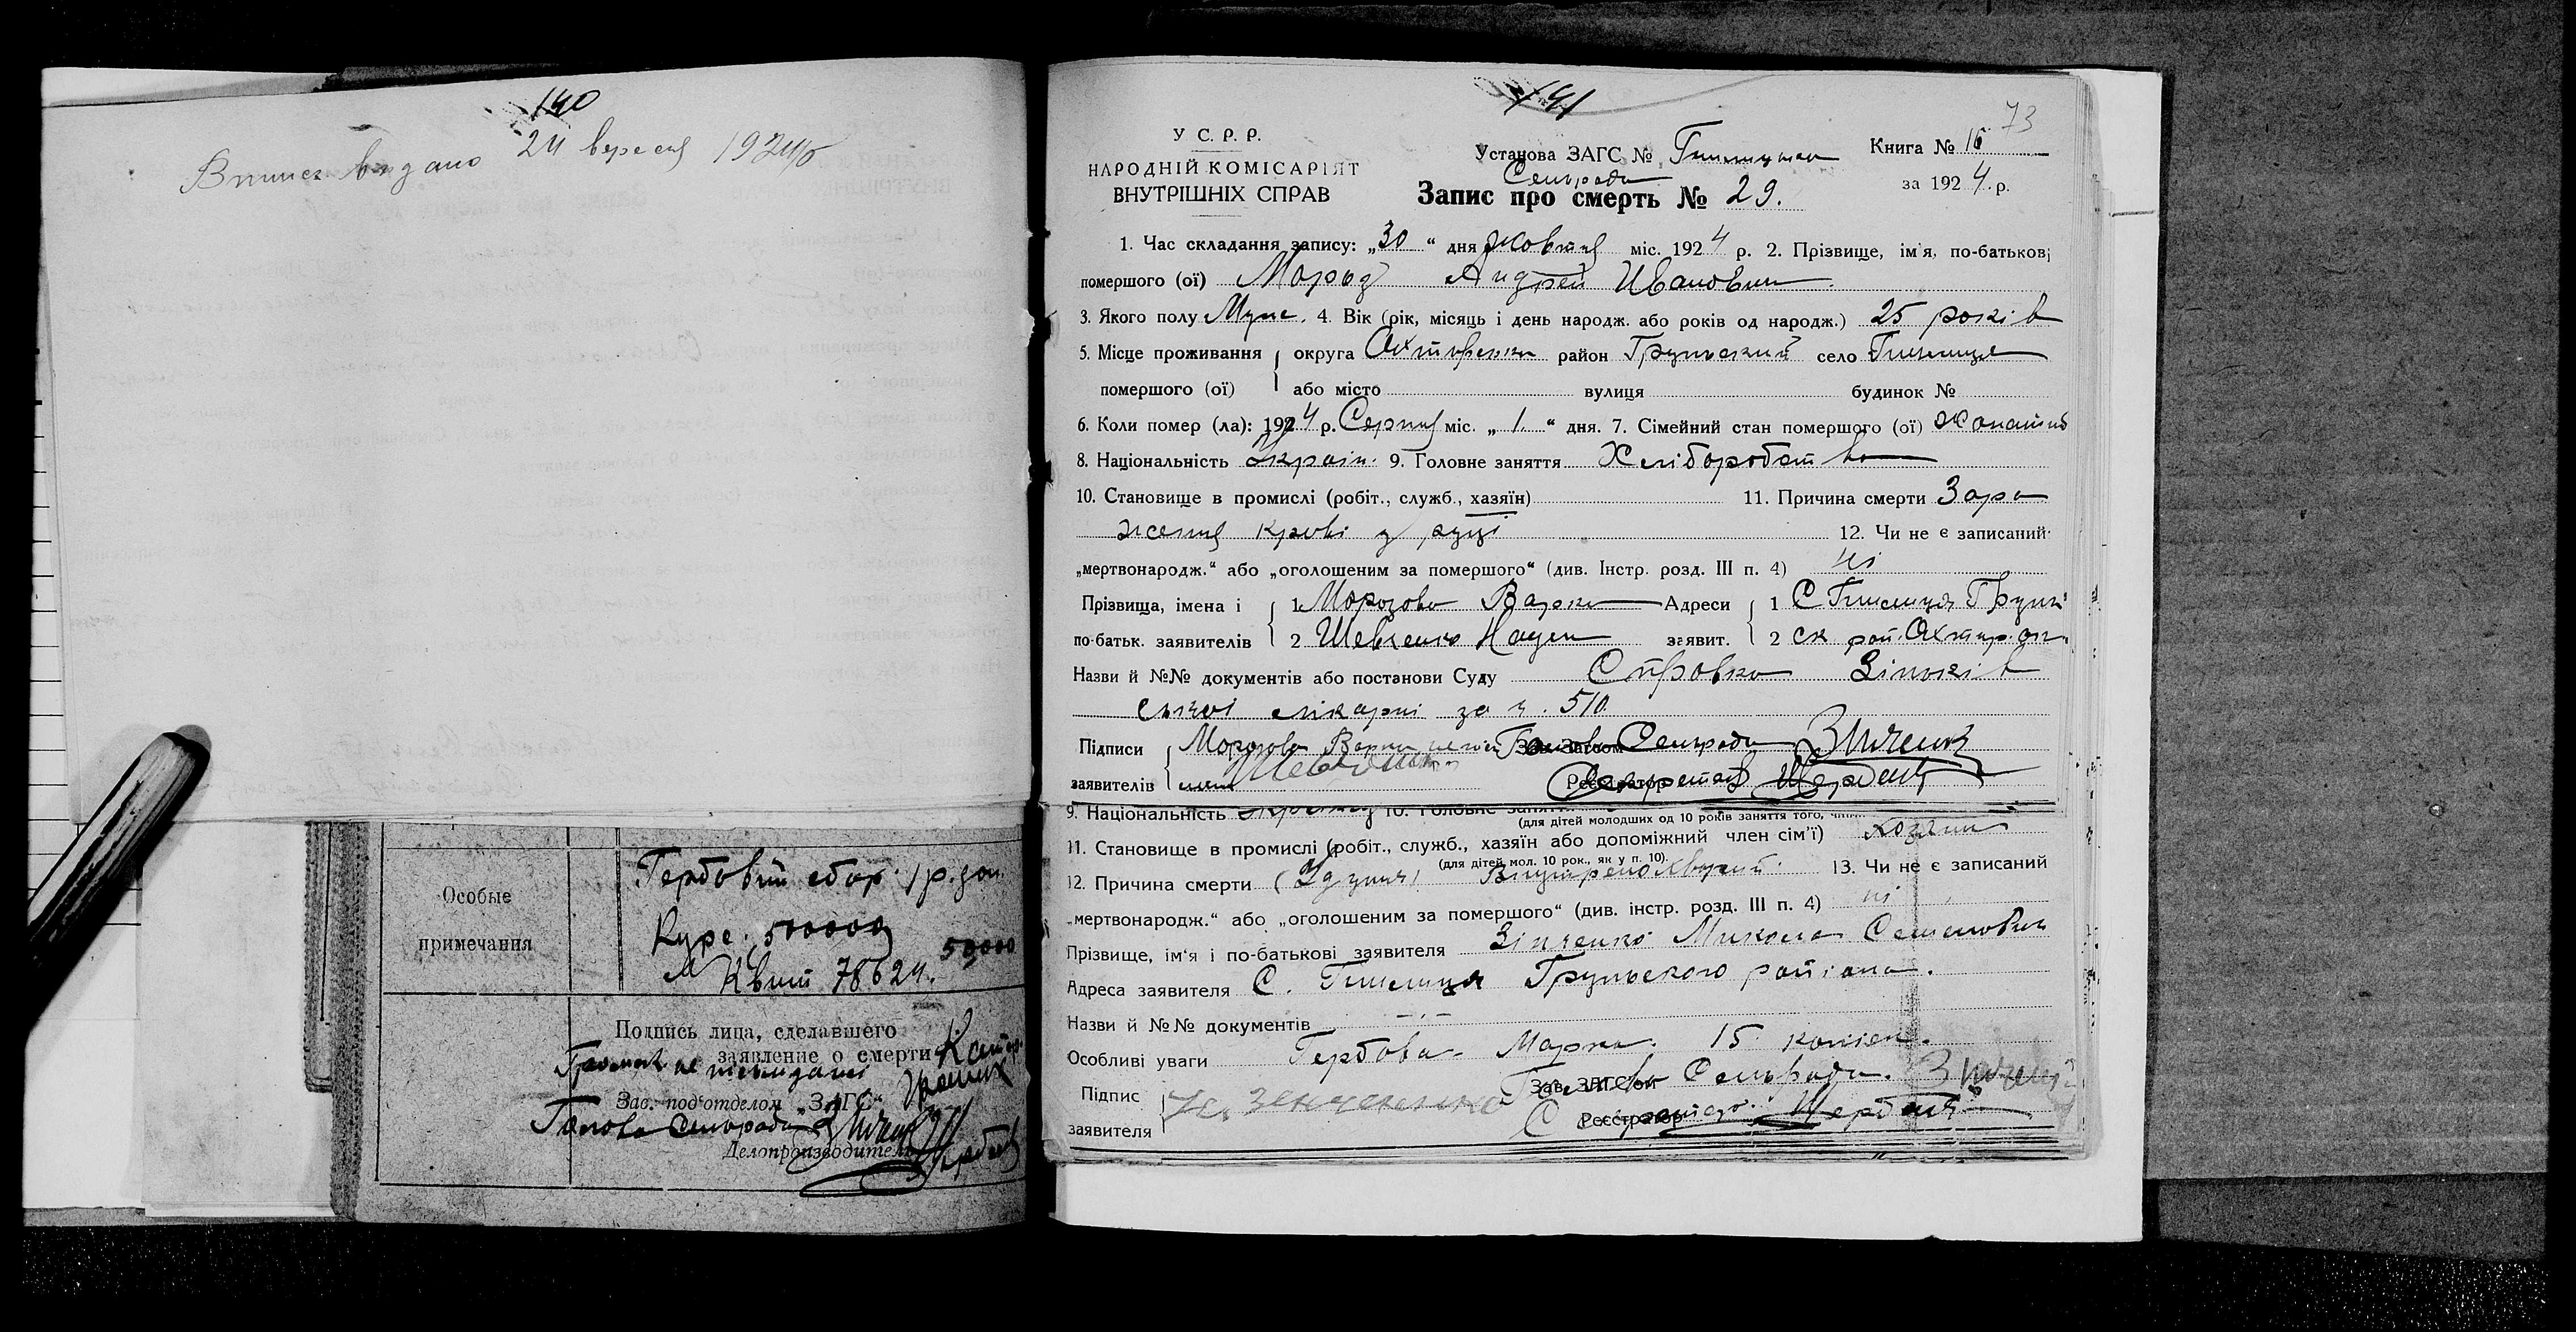 140
24 вересня 1924 р
Випись видано
Особые
примечания
Гербовий збор 1 р. зол.
Курс. 500000
50,000
Квит 78624.
Подпись лица, сделавшего
заявление о смерти
Зав. под'отделом „ЗАГС“
Голова Сельради
Делопроизводитель
141
73
У. С. Р. Р.
НАРОДНІЙ КОМІСАРІЯТ
ВНУТРІШНІХ СПРАВ
Установа ЗАГС №
Книга № 16
Сельради
за 1924 р.
Запис про смерть № 29.
1. Час складання запису: „30“ дня жовтня міс. 1924 р. 2. Прізвище, ім'я, по-батькові
помершого (ої) Мороз Андрей Иванович
3. Якого полу Муж. 4. Вік (рік, місяць і день народж. або років од народж.) 25 років
5. Місце проживання округа Охтирська район Грунський село
помершого (ої) або місто вулиця будинок №
6. Коли помер (ла): 1924 р. Серпня міс. „1.“ дня. 7. Сімейний стан помершого (ої) жонатий
8. Національність Україн. 9. Головне заняття Хліборобство
10. Становище в промислі (робіт., служб., хазяїн) 11. Причина смерти Зара
жения крові у руці 12. Чи не є записаний
„мертвонародж.“ або „оголошеним за помершого“ (див. Інстр. розд. III п. 4) ні
Прізвища, імена і 1 Морозова Варка Адреси 1 С
по-батьк. заявителів 2 Шевченко заявит. 2 ск рай. Охтир. ок.
Назви й №№ документів або постанови Суду Справка Зіньків
ської лікарні за ч. 510
Підписи Морозова Варка Зав. Загсом Голова Сельради Зінченко
заявителів Шевченко Реєстратор Секретарь Щербак
9. Національність 10. Головне заняття
(для дітей молодших од 10 років заняття того,
11. Становище в промислі (робіт., служб., хазяїн або допоміжний член сім'ї) хозяин
(для дітей мол. 10 рок., як у п. 10).
12. Причина смерти 13. Чи не є записаний
„мертвонародж.“ або „оголошеним за помершого“ (див. інстр. розд. III п. 4) ні
Прізвище, ім'я і по-батькові заявителя Зінченко Микола Семенович
Адреса заявителя С. Грунського району.
Назви й №№ документів
Особливі уваги Гербова Марка 15 копіек.
Підпис Зав. ЗАГС'ом Голова Сельради.
заявителя Реєстратор Щербак